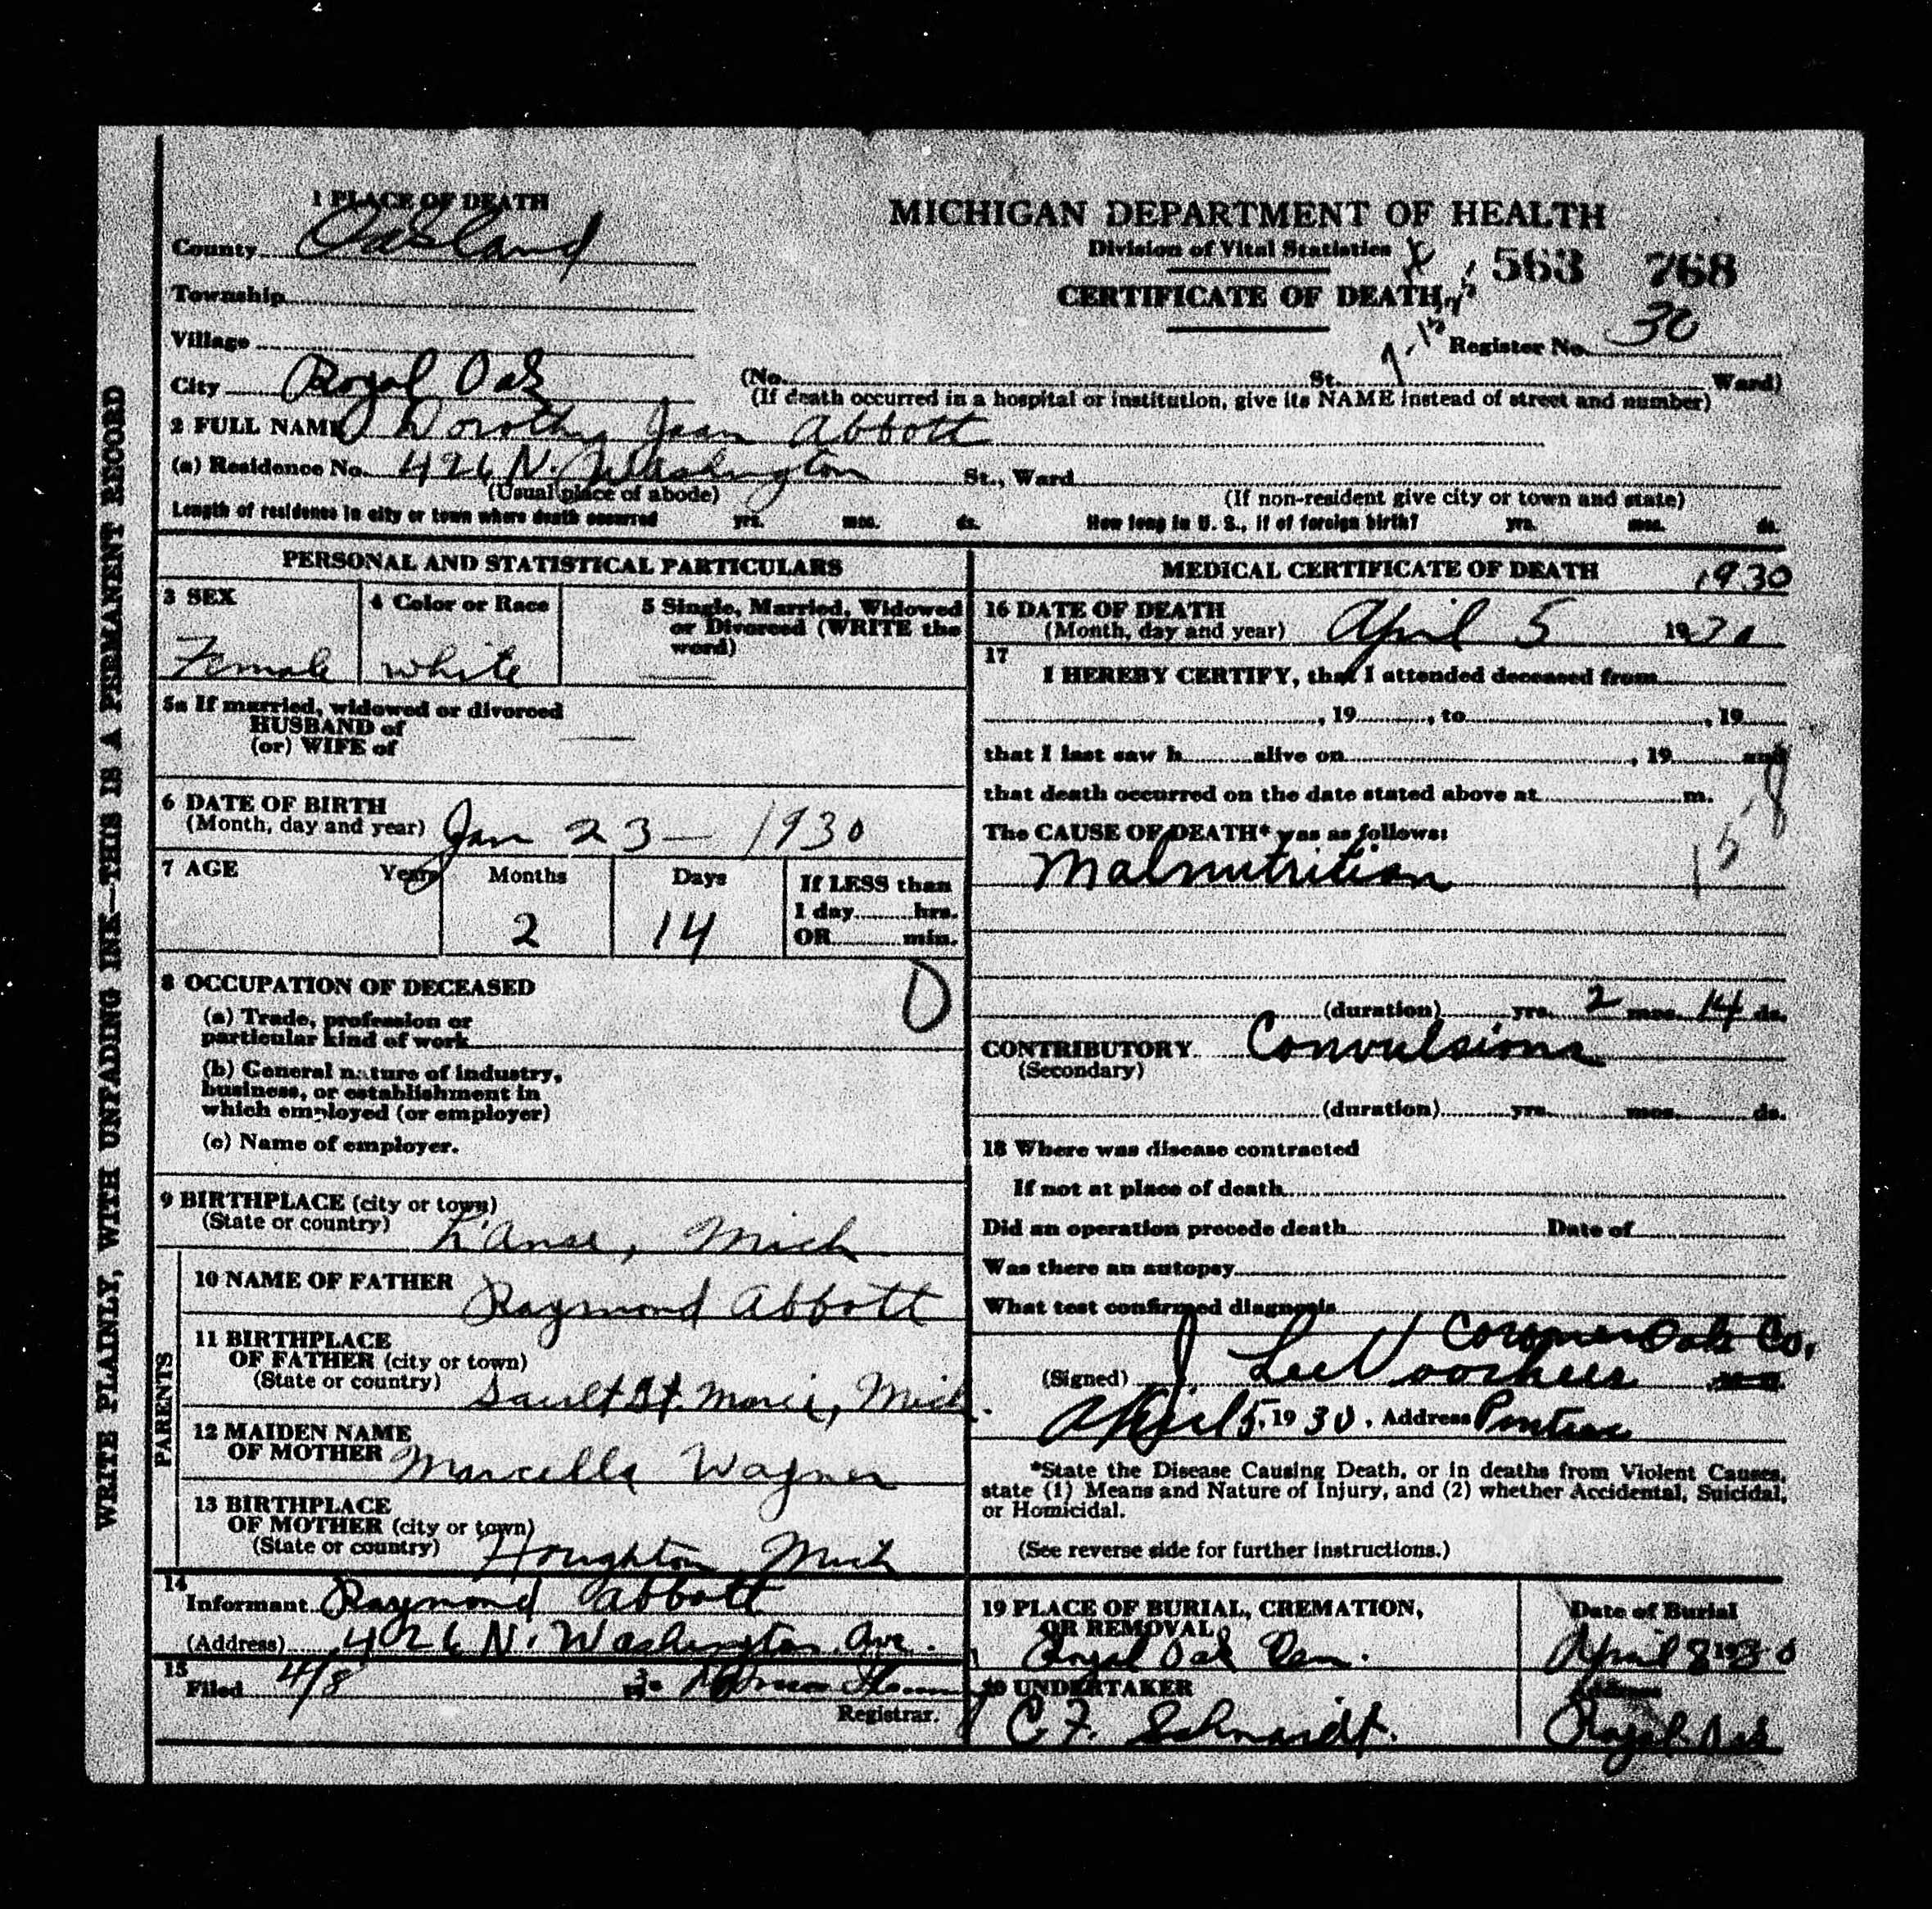 WRITE PLAINLY, WITH UNFADING INK—THIS IS A PERMANENT RECORD
1 PLACE OF DEATH
County Oakland
Township
Village
City Royal Oak
MICHIGAN DEPARTMENT OF HEALTH
Division of Vital Statistics
563 768
CERTIFICATE OF DEATH
Register No. 30
(No. St. Ward)
(If death occurred in a hospital or institution, give its NAME instead of street and number)
2 FULL NAME Dorothy Jean Abbott
(a) Residence No. 426 N. Washington St., Ward
(Usual place of abode) (If non-resident give city or town and state)
Length of residence in city or town where death occurred yrs. mos. ds. How long in U. S., if of foreign birth? yrs. mos. ds.
PERSONAL AND STATISTICAL PARTICULARS
3 SEX
Female
4 Color or Race
white
5 Single, Married, Widowed
or Divorced (WRITE the
word)
—
5a If married, widowed or divorced
HUSBAND of
(or) WIFE of —
6 DATE OF BIRTH
(Month, day and year) Jan 23 — 1930
7 AGE Years Months Days If LESS than
1 day hrs.
2 14 OR min.
0
8 OCCUPATION OF DECEASED
(a) Trade, profession or
particular kind of work
(b) General nature of industry,
business, or establishment in
which employed (or employer)
(c) Name of employer.
9 BIRTHPLACE (city or town)
(State or country) L'Anse, Mich
PARENTS
10 NAME OF FATHER Raymond Abbott
11 BIRTHPLACE
OF FATHER (city or town)
(State or country) Sault St. Marie, Mich.
12 MAIDEN NAME
OF MOTHER Marcella Wagner
13 BIRTHPLACE
OF MOTHER (city or town)
(State or country) Houghton Mich
14
Informant Raymond Abbott
(Address) 426 N. Washington Ave.
15
Filed 4/8
Registrar.
MEDICAL CERTIFICATE OF DEATH 1930
16 DATE OF DEATH
(Month, day and year) April 5 1930
17
I HEREBY CERTIFY, that I attended deceased from
, 19 , to , 19
that I last saw h alive on , 19 and
that death occurred on the date stated above at m.
The CAUSE OF DEATH* was as follows:
Malnutrition 158
(duration) yrs. 2 mos. 14 ds.
CONTRIBUTORY Convulsions
(Secondary)
(duration) yrs. mos. ds.
18 Where was disease contracted
If not at place of death
Did an operation precede death Date of
Was there an autopsy
What test confirmed diagnosis
Coroner Oak Co.
(Signed) J Lee Voorhees
April 5, 1930, Address Pontiac
*State the Disease Causing Death, or in deaths from Violent Causes,
state (1) Means and Nature of Injury, and (2) whether Accidental, Suicidal,
or Homicidal.
(See reverse side for further instructions.)
19 PLACE OF BURIAL, CREMATION,
OR REMOVAL
Royal Oak Cem.
Date of Burial
April 8 1930
20 UNDERTAKER
C. F. Schmidt.
Royal Oak